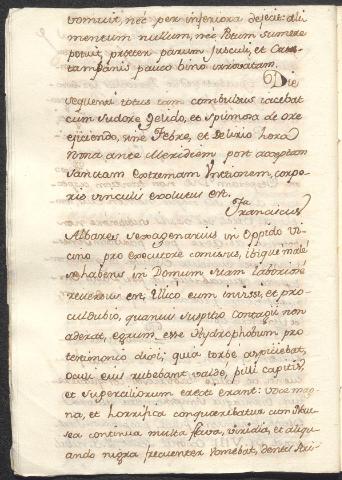 vomuit, nec per inferiora dejecit: ali
mentum nullum, nec Potum sumere
potuit, præter parum jusculi, et
pauco vino irroratam.
Die
sequenti totus tam combustus iacebat
cum sudore gelido, et spumosa de ore
ejiciendo, sine Febre, et Delirio hora
nona ante Meridiem post acceptam
Sanctam Extremam Unctionem, corpo
reo vinculis exolutus est.
Franciscus
Albares sexagenarius in Oppido vi
cino pro executore comisus, ibique malé
se habens in Domum suam laboriosé
reversus est, Illico eum invissi, et pro
culdubio, quamvis suspitio contagii non
aderat, egrum esse Hydrophobum pro
testimonio dixi; quia torbe aspiciebat,
oculi eius rubebant valdé, pilli capitis,
et superciliorum erecti erant: voce mag
na, et horrifica conquerebatur cum Nau
sea continua multa flava, viridia, et aliqu
ando nigra frequenter vomebat, dentes stri